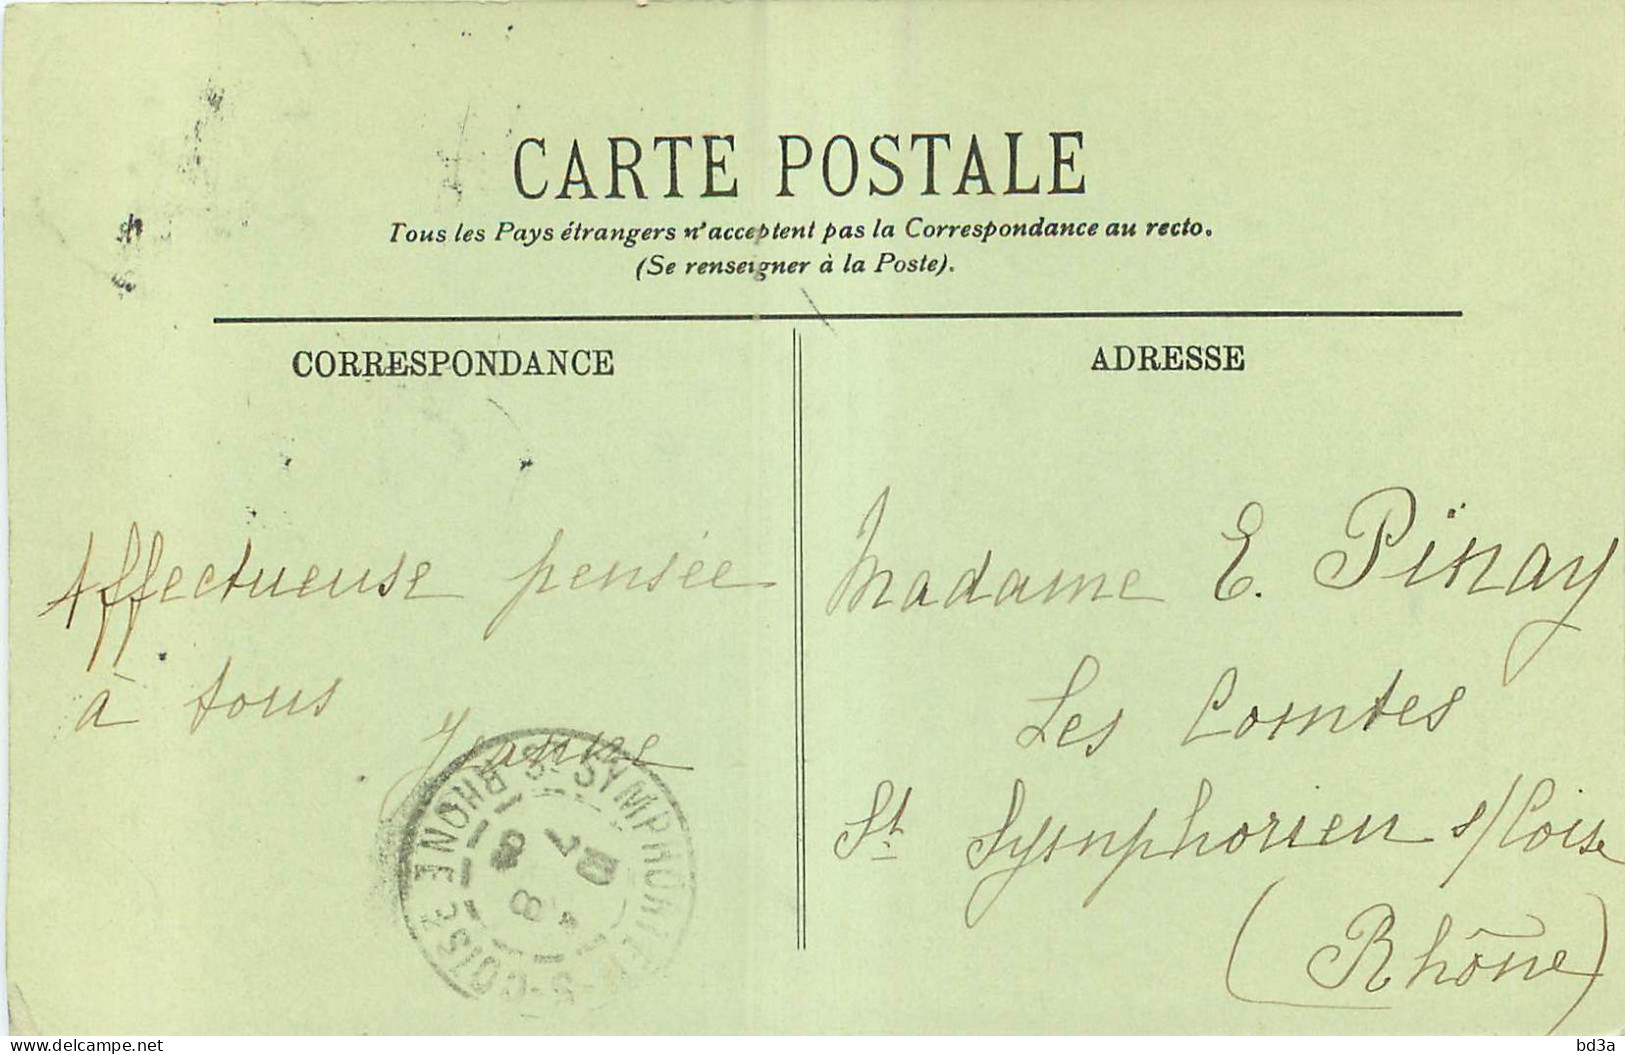 CARTE POSTALE
Tous les Pays étrangers n'acceptent pas la Correspondance au recto.
(Se renseigner à la Poste).
CORRESPONDANCE
ADRESSE
Affectueuse pensée
à tous
Jeanne
Madame E. Pinay
Les Comtes
St Symphorien s/Coise
(Rhône)
St SYMPHORIEN-S-COISE RHONE
delcampe.net
bd3a